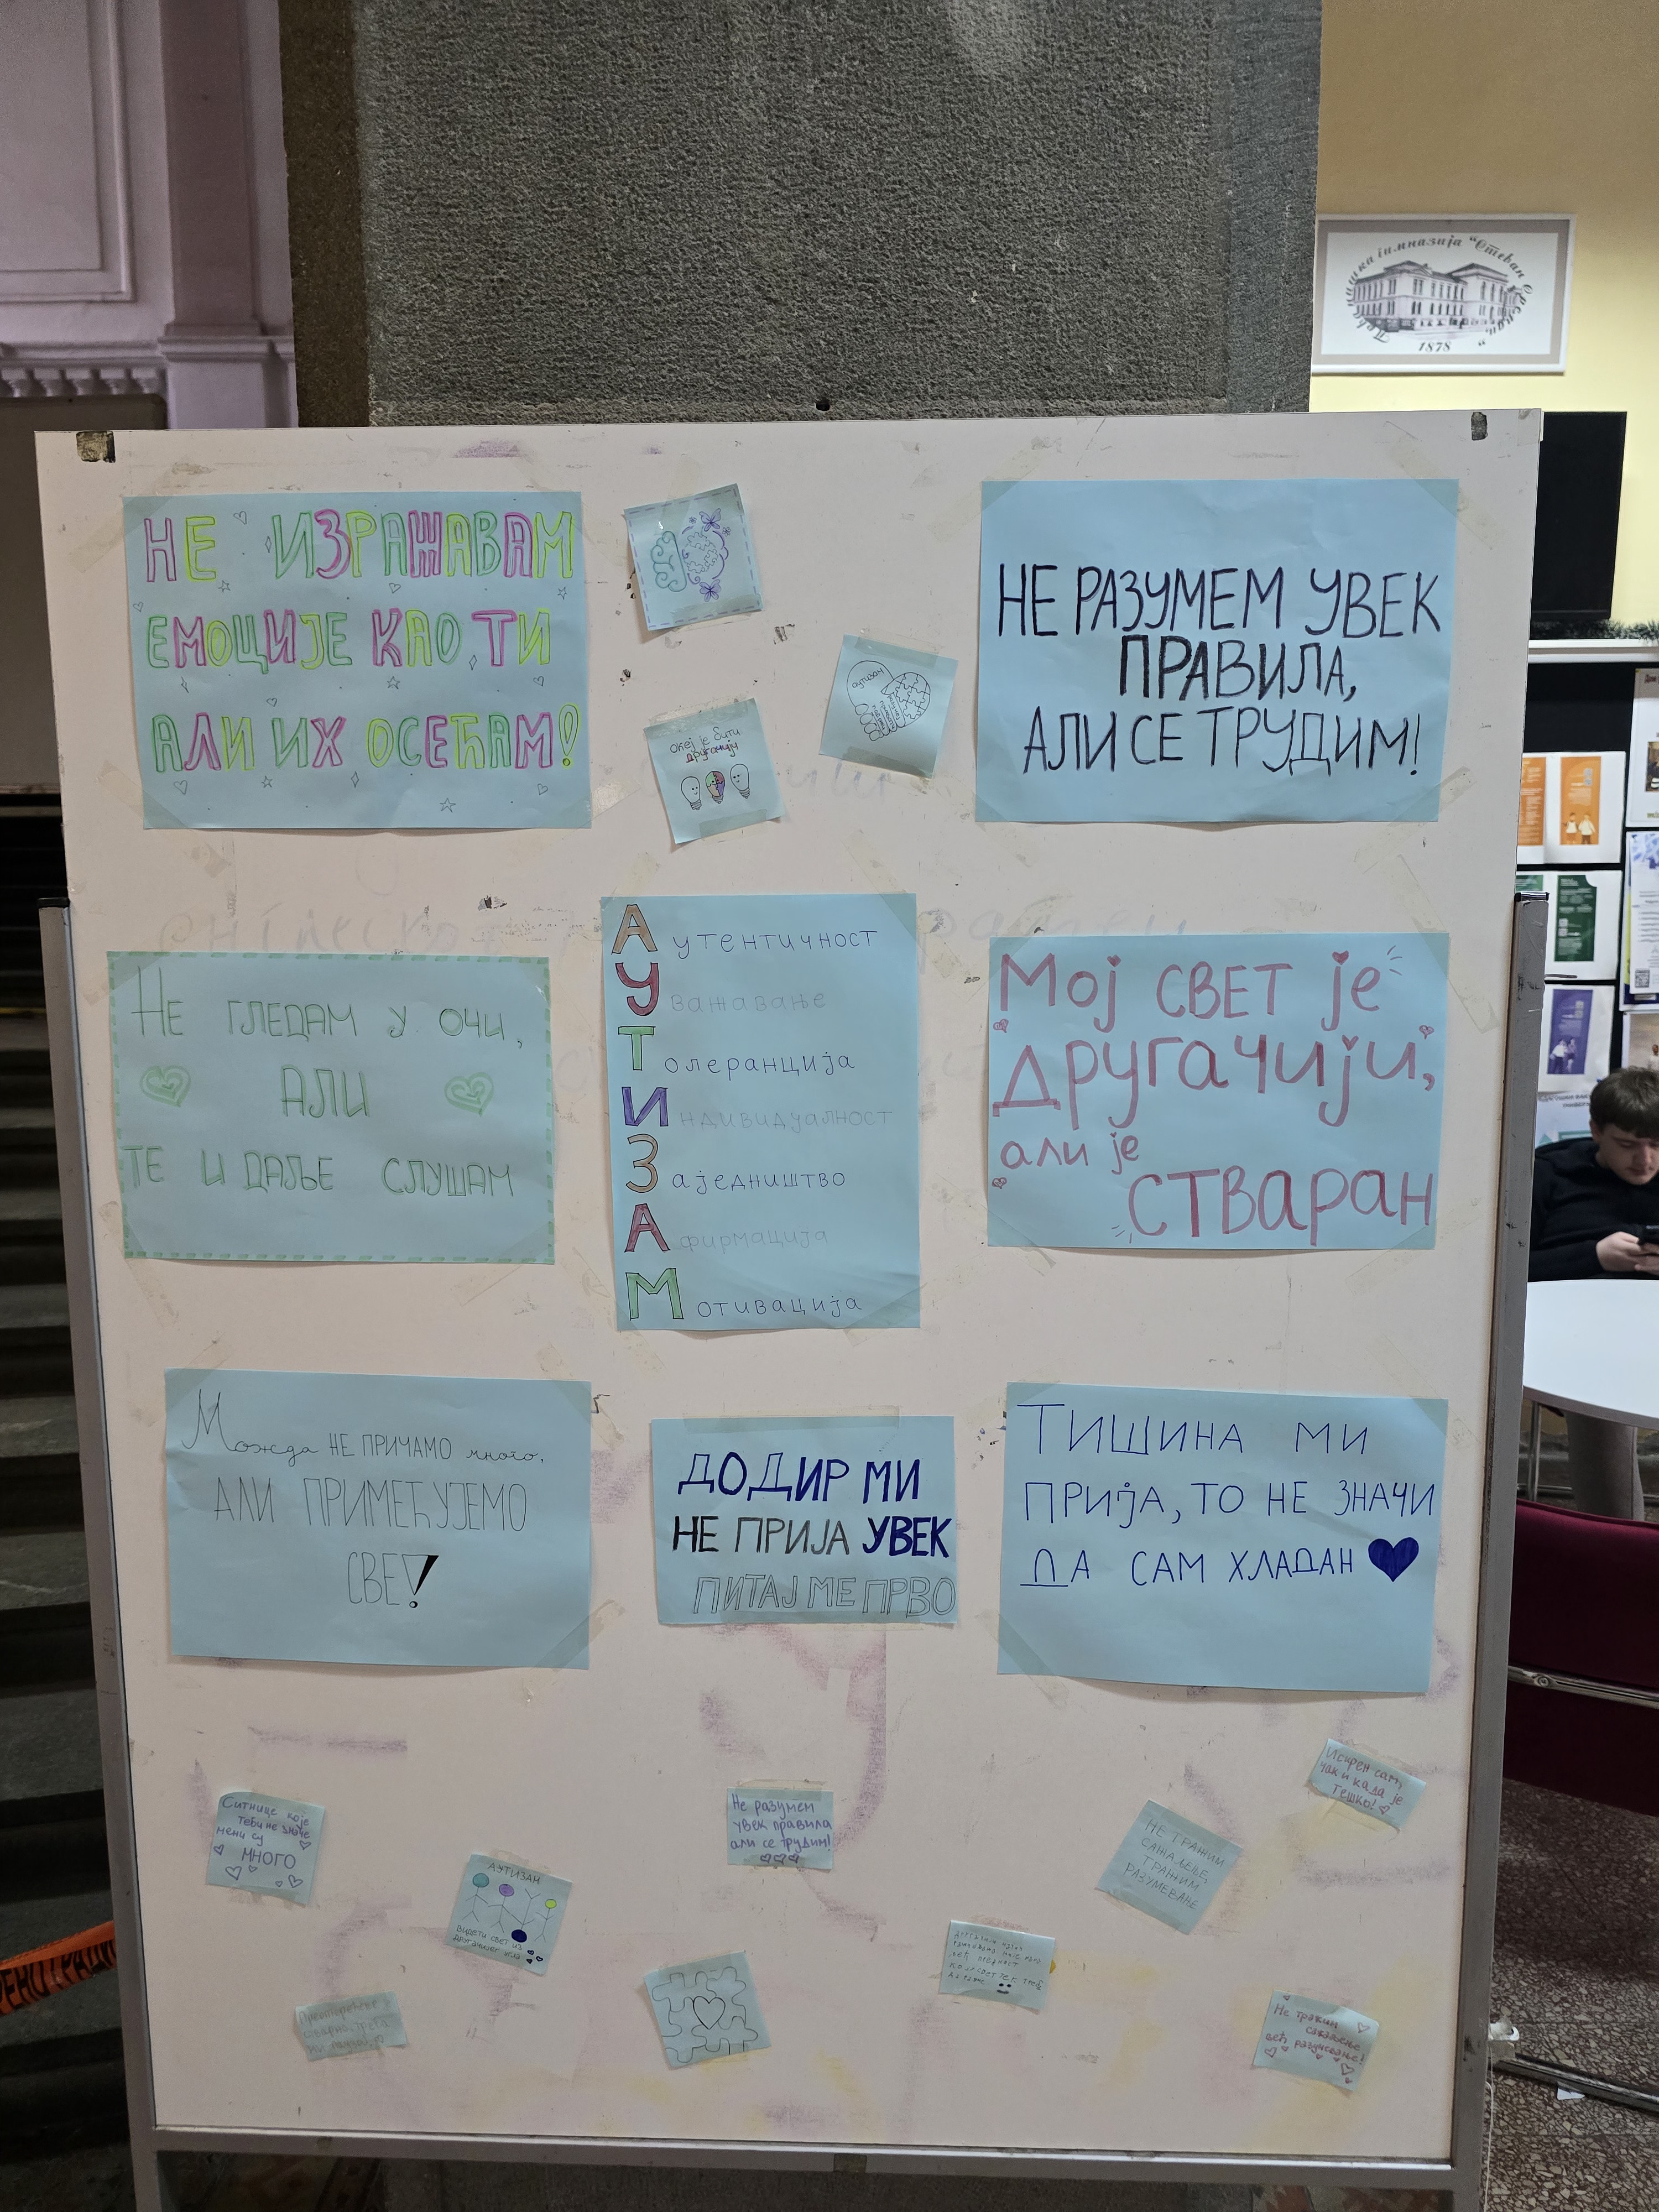 Нишка гимназија "Стеван Сремац"
1878
НЕ ИЗРАЖАВАМ
ЕМОЦИЈЕ КАО ТИ
АЛИ ИХ ОСЕЋАМ!
аутизам
Океј је бити
другачији
НЕ РАЗУМЕМ УВЕК
ПРАВИЛА,
АЛИ СЕ ТРУДИМ!
НЕ ГЛЕДАМ У ОЧИ,
АЛИ
ТЕ И ДАЉЕ СЛУШАМ
Аутентичност
Уважавање
Толеранција
Индивидуалност
Заједништво
Афирмација
Мотивација
Мој СВЕТ је
другачији,
али је
СТВАРАН
Можда НЕ ПРИЧАМО много,
АЛИ ПРИМЕЋУЈЕМО
СВЕ!
ДОДИР МИ
НЕ ПРИЈА УВЕК
ПИТАЈ МЕ ПРВО
ТИШИНА МИ
ПРИЈА, ТО НЕ ЗНАЧИ
ДА САМ ХЛАДАН
Ситнице које
теби не значе
мени су
МНОГО
АУТИЗАМ
ВИДЕТИ СВЕТ ИЗ
ДРУГАЧИЈЕГ УГЛА
Не разумем
увек правила
али се трудим!
НЕ ТРАЖИМ
САЖАЉЕЊЕ,
ТРАЖИМ
РАЗУМЕВАЊЕ
Искрен сам,
чак и када је
тешко!
Не тражим
сажаљење,
већ разумевање!